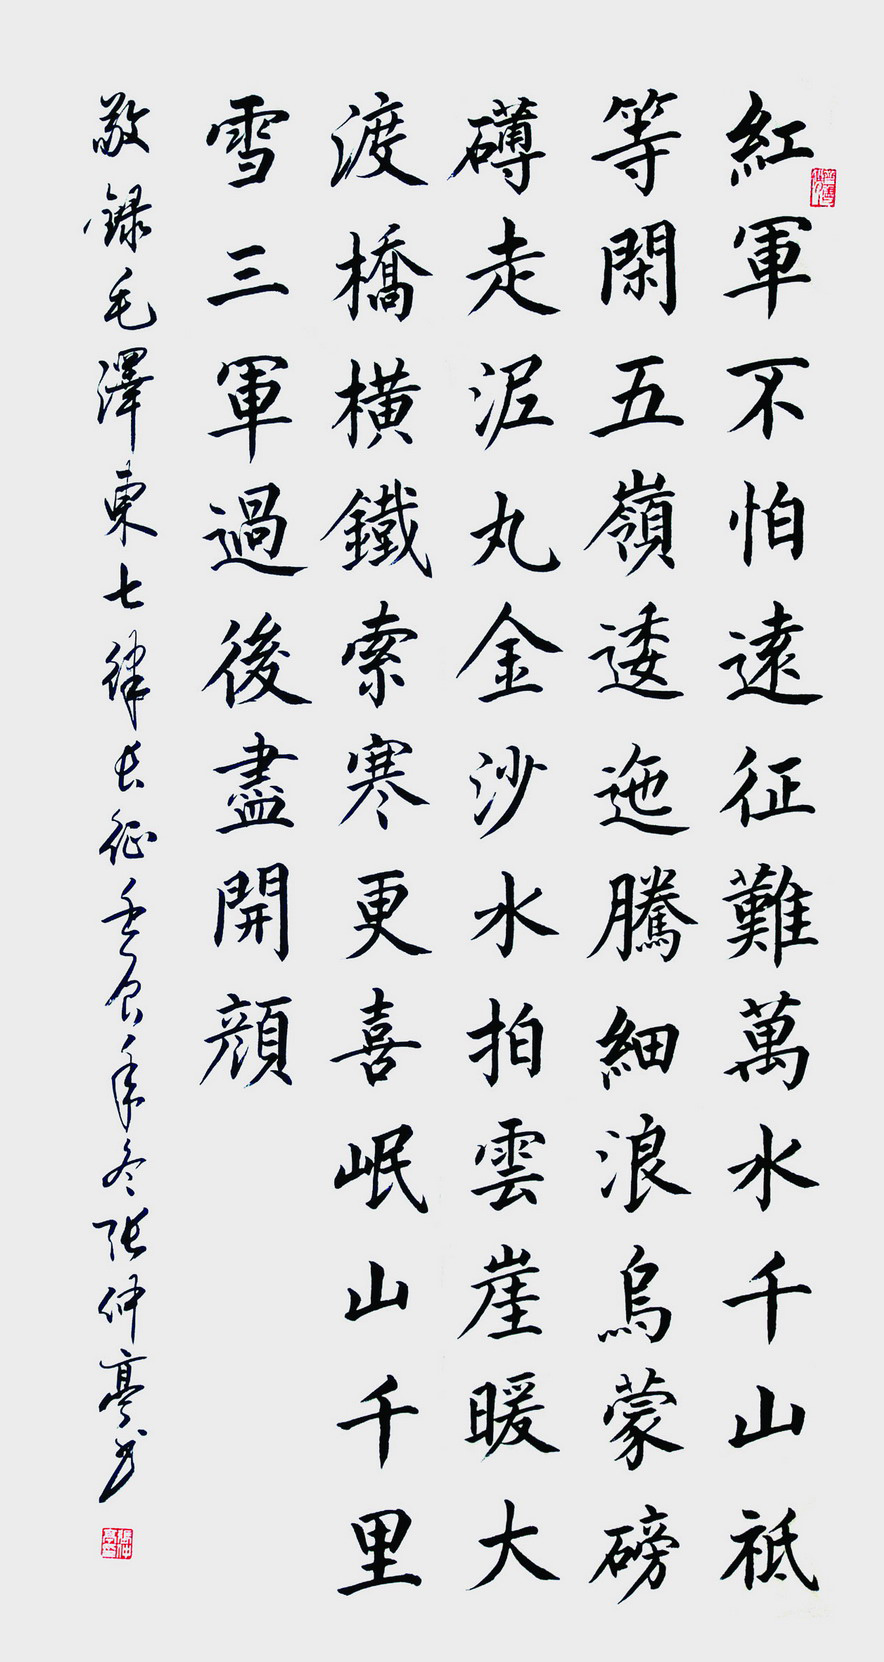 紅軍不怕遠征難萬水千山祗
等閑五嶺逶迤騰細浪烏蒙磅
礴走泥丸金沙水拍雲崖暖大
渡橋橫鐵索寒更喜岷山千里
雪三軍過後盡開顔
敬録毛澤東七律長征壬寅年冬張仲亭書